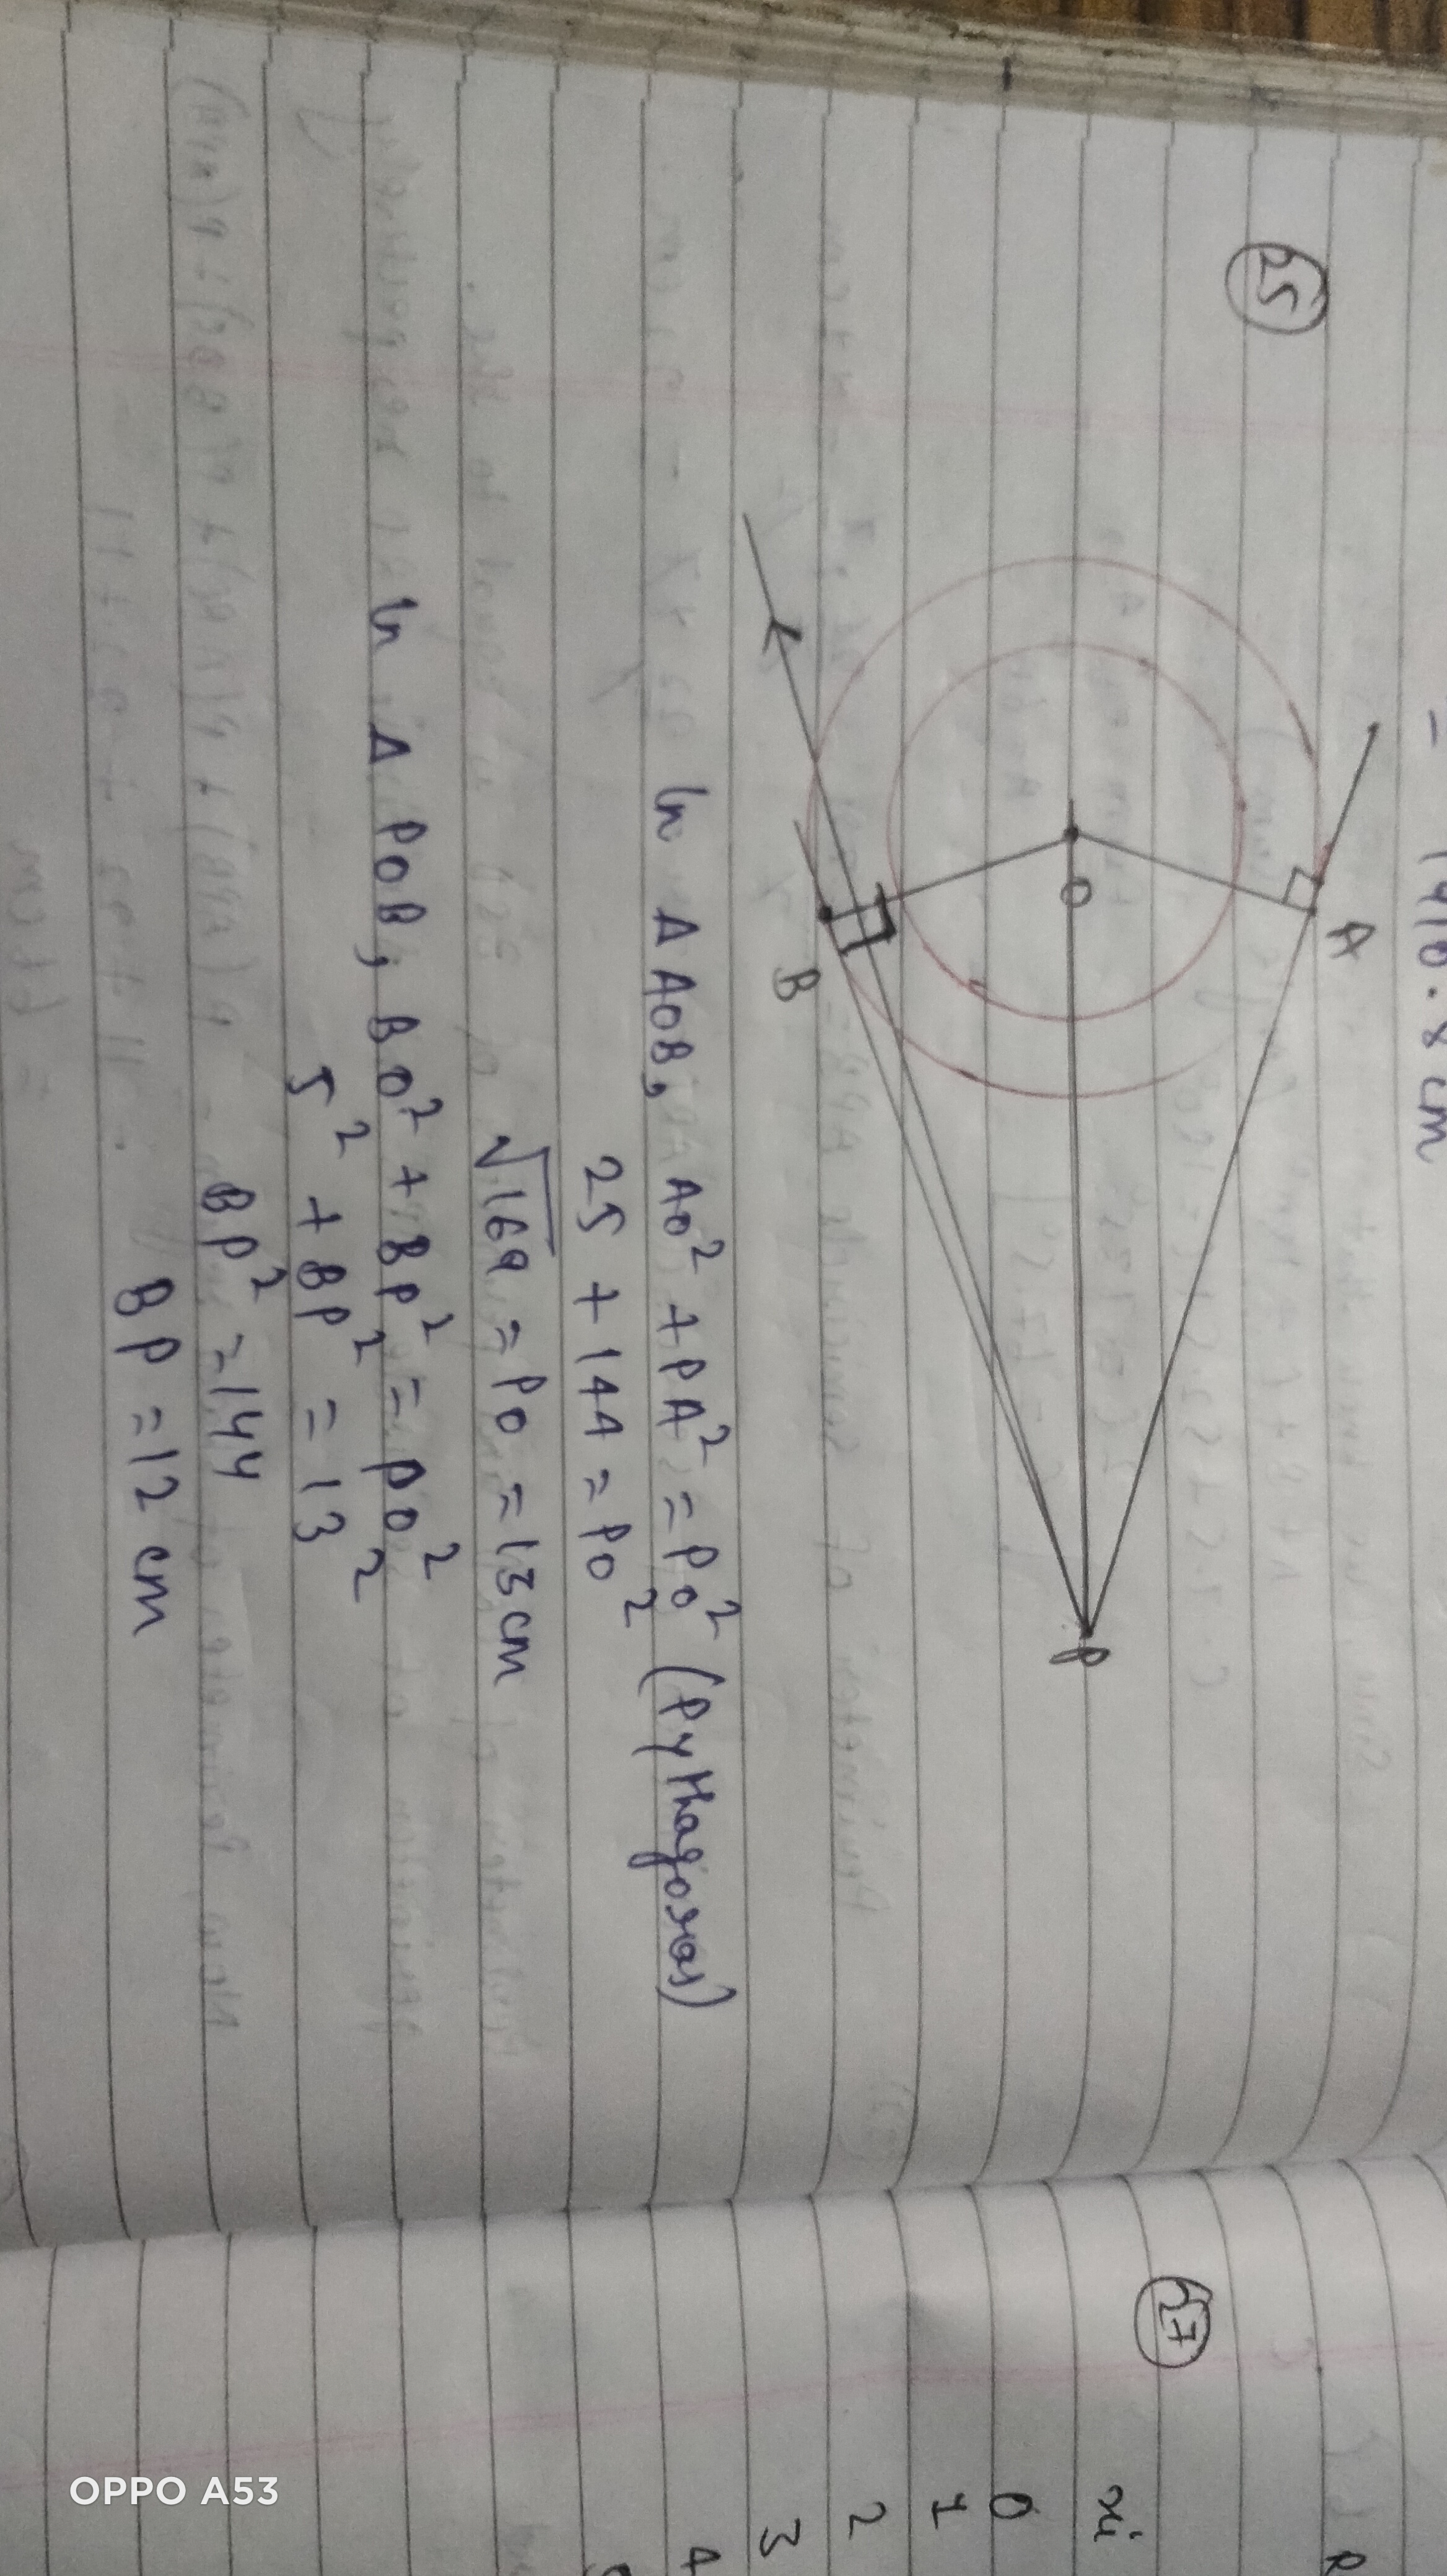 = 1410.8 cm
25
A
O
B
P
In Δ AOB, AO² + PA² = PO² (Pythagoras)
25 + 144 = PO²
√169 = PO = 13 cm
In Δ POB, BO² + BP² = PO²
5² + BP² = 13²
BP² = 144
BP = 12 cm
27
xi
0
1
2
3
4
OPPO A53